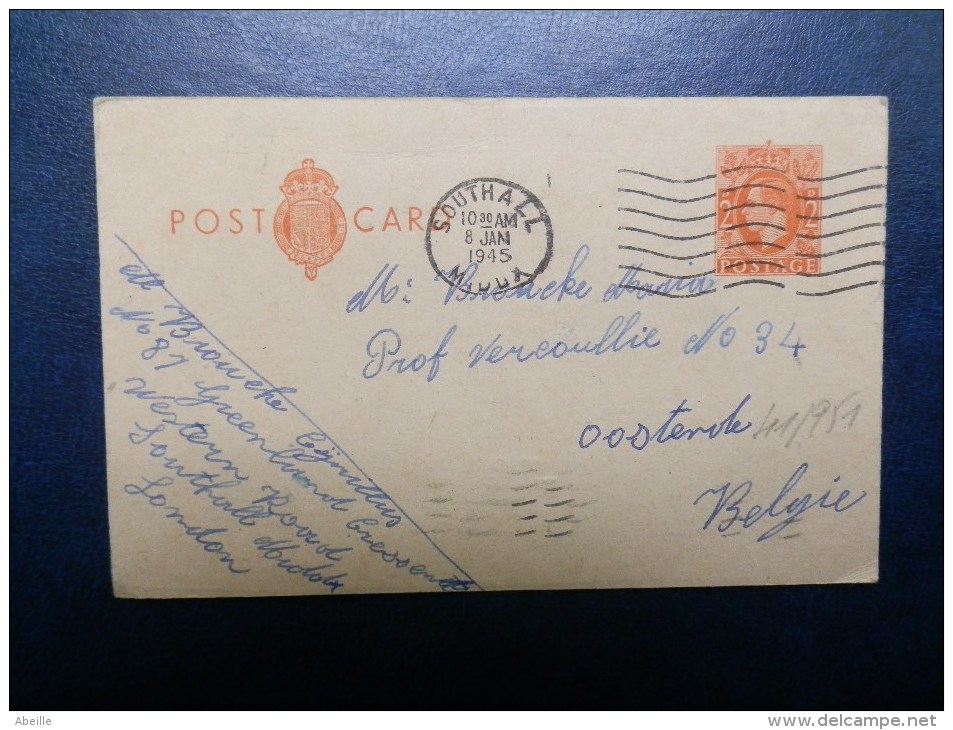 POST CARD
SOUTHALL
10 30 AM
8 JAN
1945
MIDDX
2 2
POSTAGE
Mr Broucke
Prof Vercoullie No 34
Oostende
41/951
Belgie
Broucke
No 87 Greenland Cressend
Western Road
Southall Middx
London
Abeille
www.delcampe.net